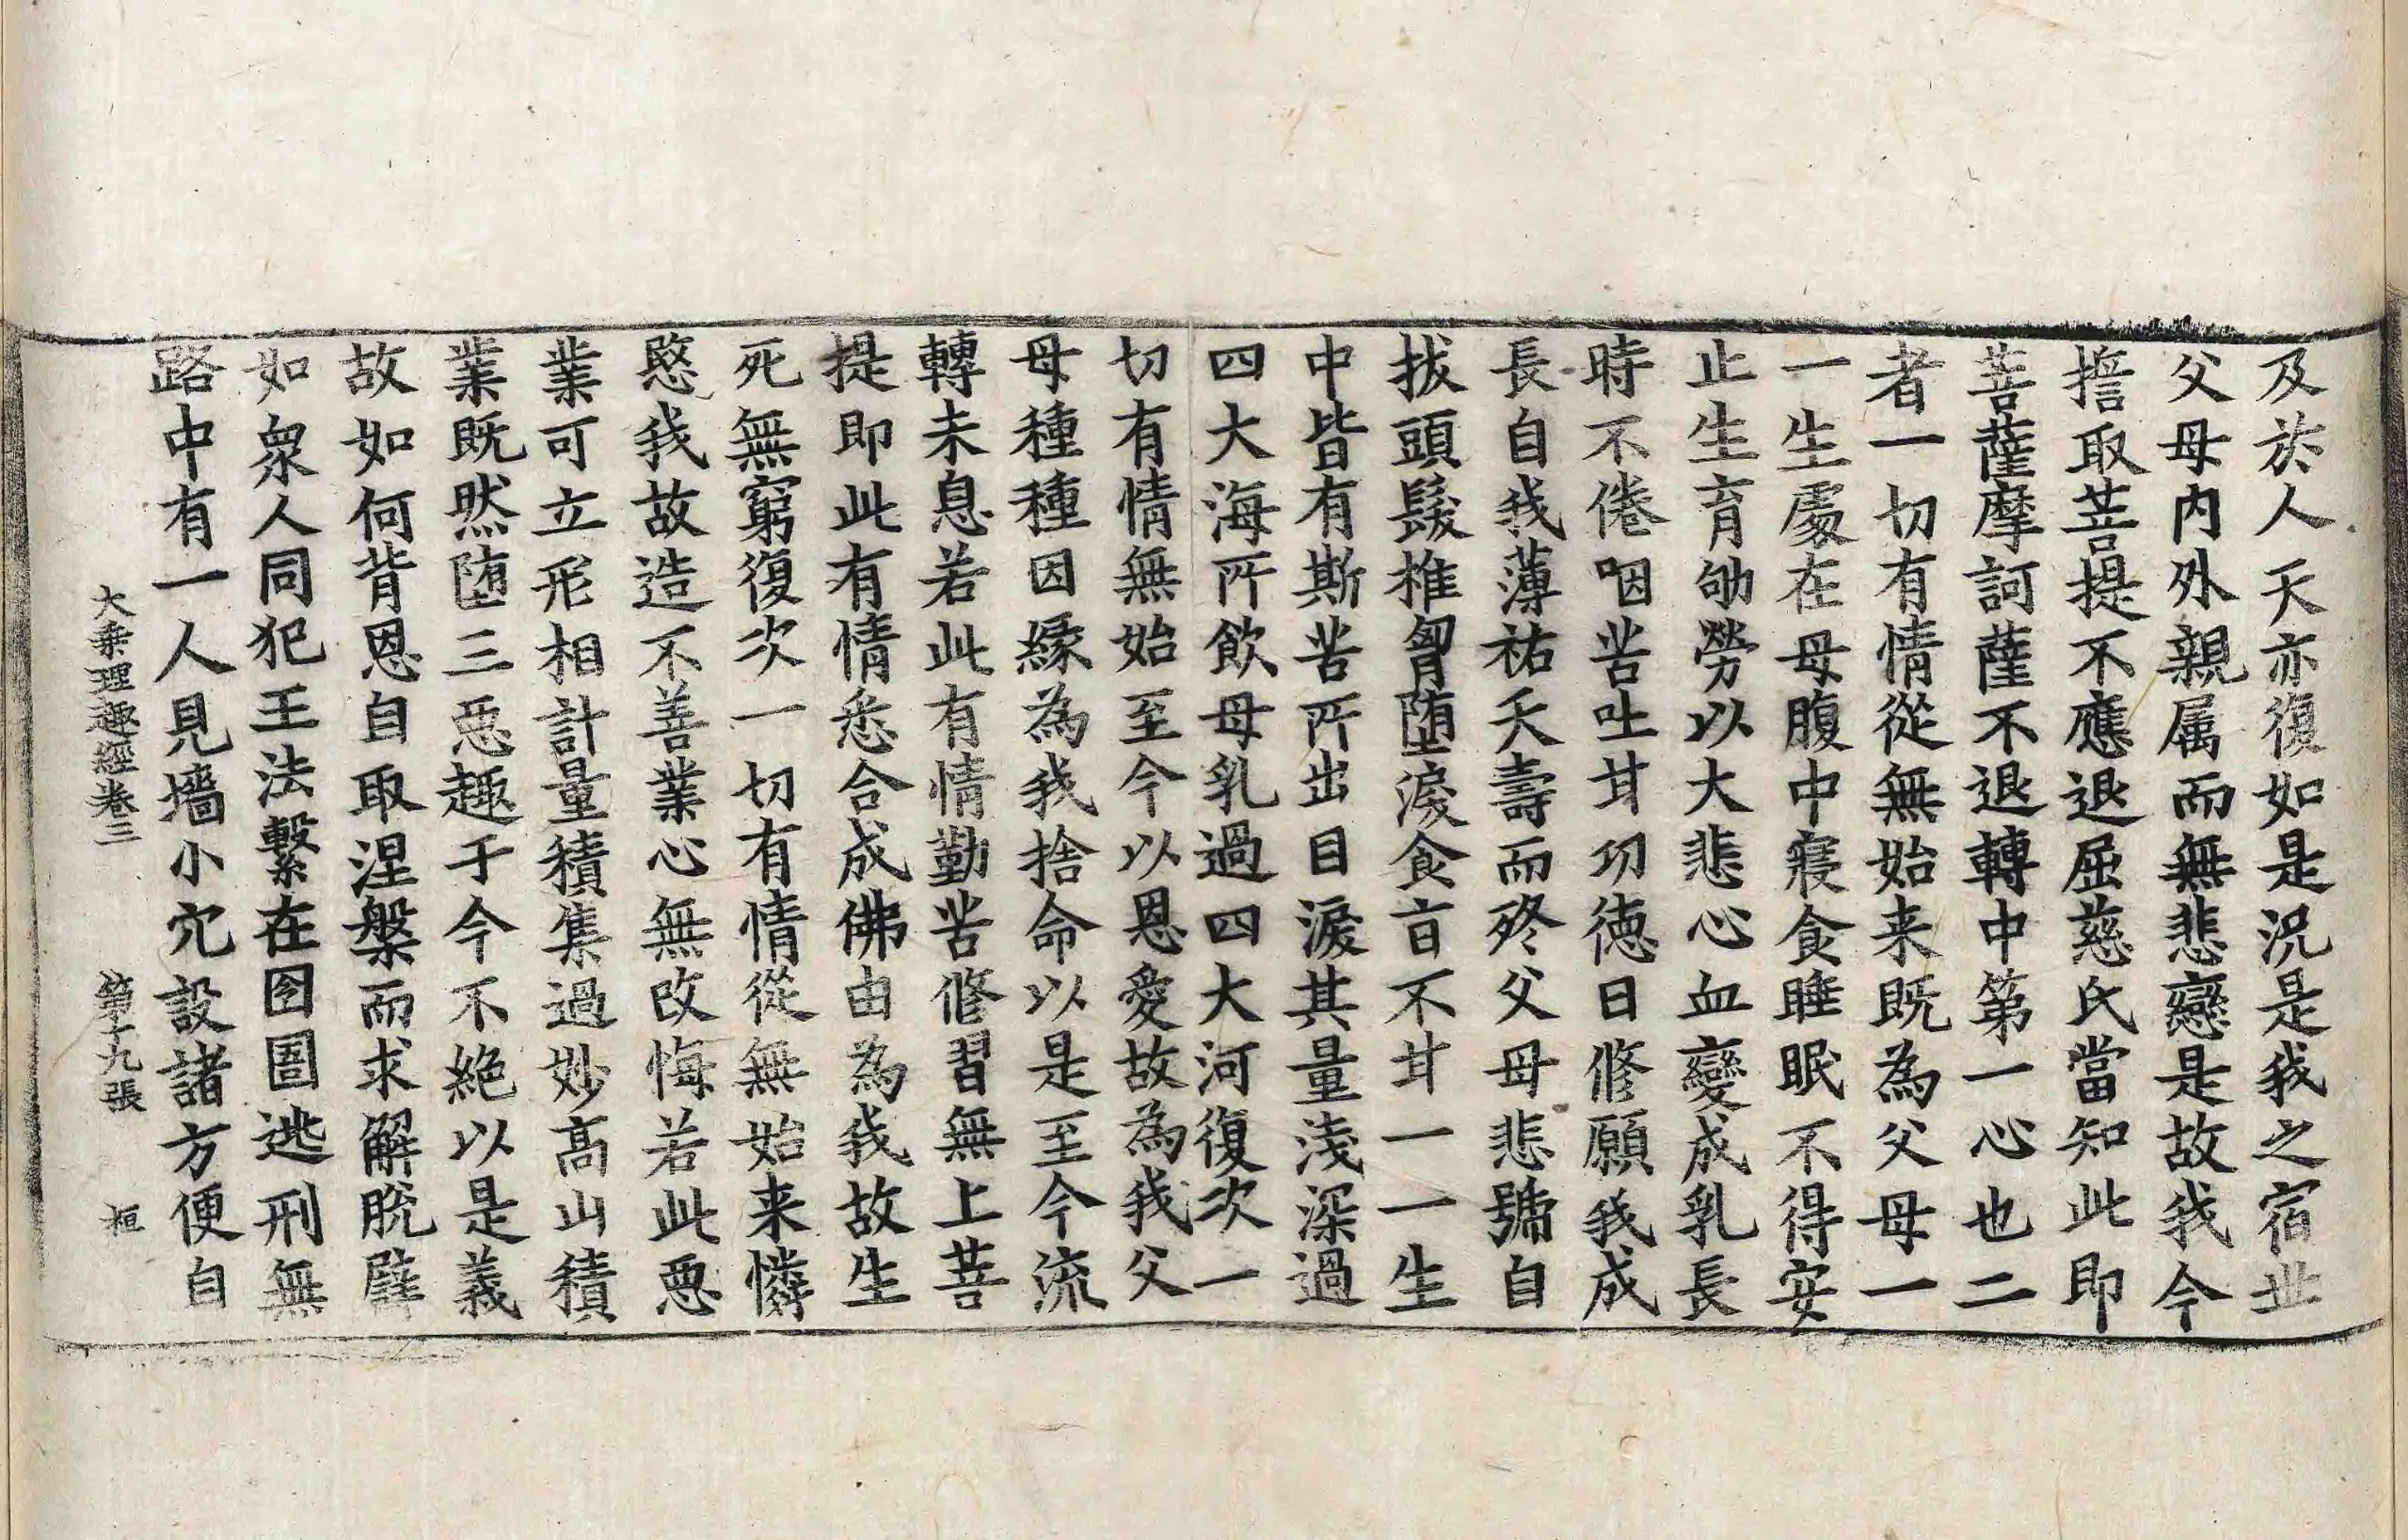 及於人天亦復如是況是我之宿世
父母内外親属而無悲戀是故我今
擔取菩提不應退屈慈氏當知此即
菩薩摩訶薩不退轉中第一心也二
者一切有情從無始来既為父母一
一生處在母腹中寢食睡眠不得安
止生育劬勞以大悲心血變成乳長
時不倦咽苦吐甘功德日修願我成
長自我薄祐夭壽而殀父母悲號自
拔頭髮椎胷堕淚食旨不甘一一生
中皆有斯苦所出目淚其量淺深過
四大海所飲母乳過四大河復次一
切有情無始至今以恩愛故為我父
母種種因緣為我捨命以是至今流
轉未息若此有情勤苦修習無上菩
提即此有情悉合成佛由為我故生
死無窮復次一切有情從無始来憐
愍我故造不善業心無改悔若此惡
業可立形相計量積集過妙高山積
業既然堕三惡趣于今不絶以是義
故如何背恩自取涅槃而求解脫譬
如衆人同犯王法繫在囹圄逃刑無
路中有一人見墻小穴設諸方便自
大乘理趣經卷三 第十九張 桓